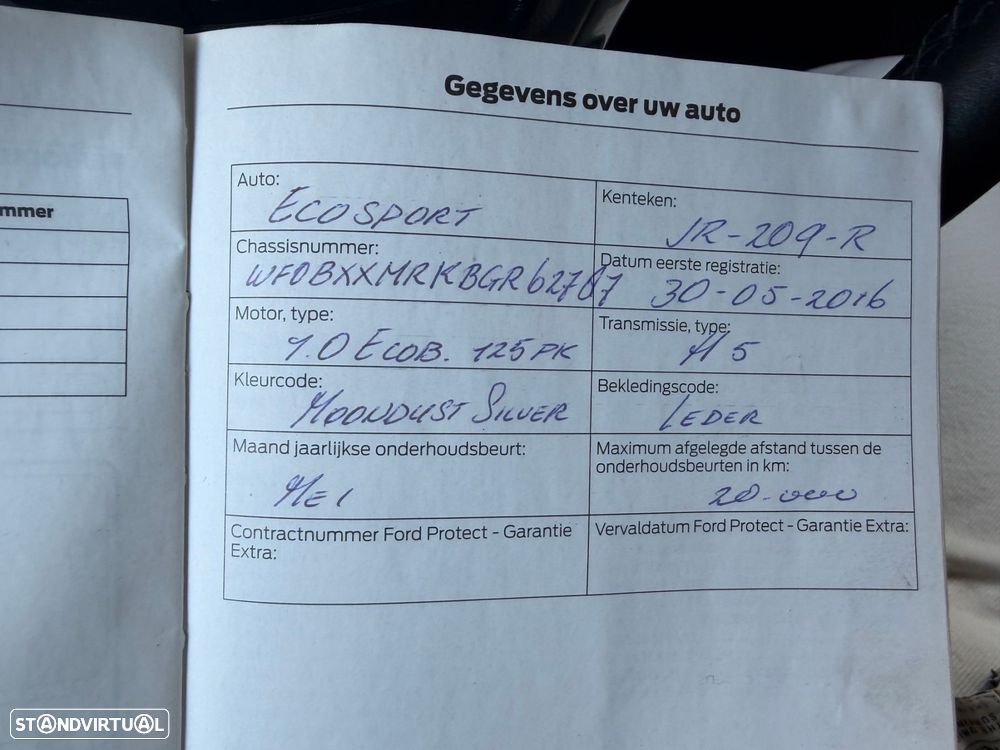 mmer
Gegevens over uw auto
Auto:
ECOSPORT
Kenteken:
JR-209-R
Chassisnummer:
WF0BXXMRKBGR62787
Datum eerste registratie:
30-05-2016
Motor, type:
1.0 ECOB. 125PK
Transmissie, type:
M5
Kleurcode:
MOONDUST SILVER
Bekledingscode:
LEDER
Maand jaarlijkse onderhoudsbeurt:
MEI
Maximum afgelegde afstand tussen de
onderhoudsbeurten in km:
20.000
Contractnummer Ford Protect - Garantie
Extra:
Vervaldatum Ford Protect - Garantie Extra:
STANDVIRTUAL